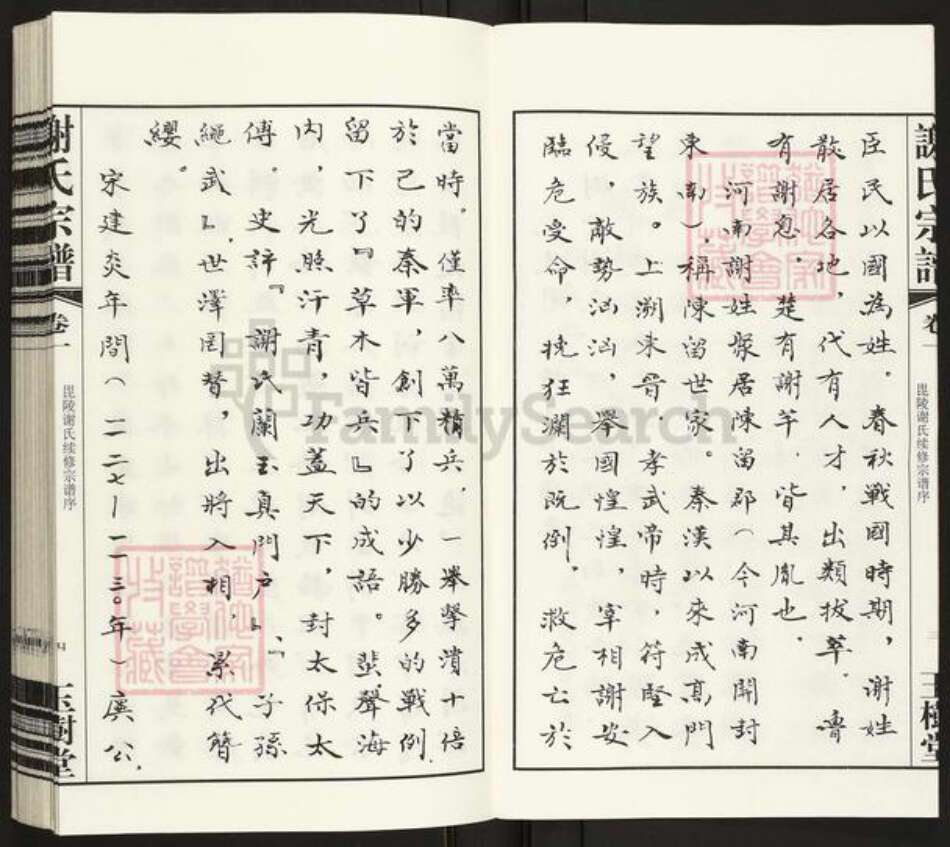 謝氏宗譜
卷一
毘陵谢氏续修宗谱序
玉樹堂
臣民以國為姓。春秋戰國時期，谢姓
散居各地，代有人才，出類拔萃。魯
有謝息，楚有謝芊．皆其胤也．
河南謝姓聚居陳留郡（今河南開封
東南），稱陳留世家。秦漢以來成髙門
望族。上溯来晋．孝武帝時，符堅入
侵，敵勢汹汹，舉國惶惶，宰相謝安
臨危受命，挽狂瀾於既倒．救危亡於
當時．僅率八萬精兵．一舉擊潰十倍
於己的秦軍，創下了以少勝多的戰例．
留下了『草木皆兵』的成語。蜚聲海
内，光照汗青，功蓋天下，封太保太
傅．史評『謝氏蘭玉真門户』、『子孫
繩武』．世澤罔替，出將入相，累代簪
纓。
宋建炎年間（一一二七—一一三〇年）廣公，
謝氏宗譜
卷一
毘陵谢氏续修宗谱序
四
玉樹堂
FamilySearch